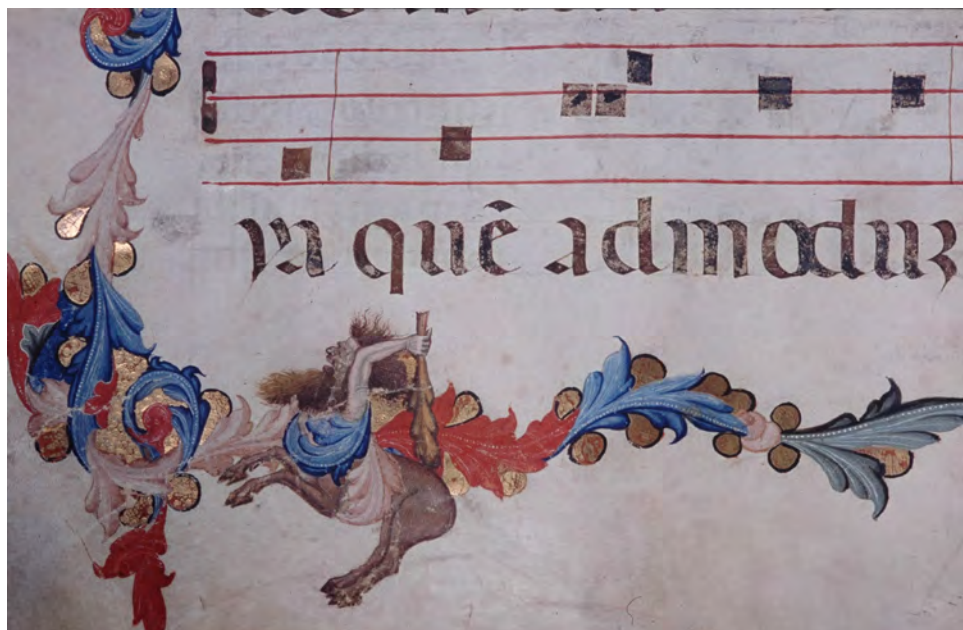 ya quē admoduʒ